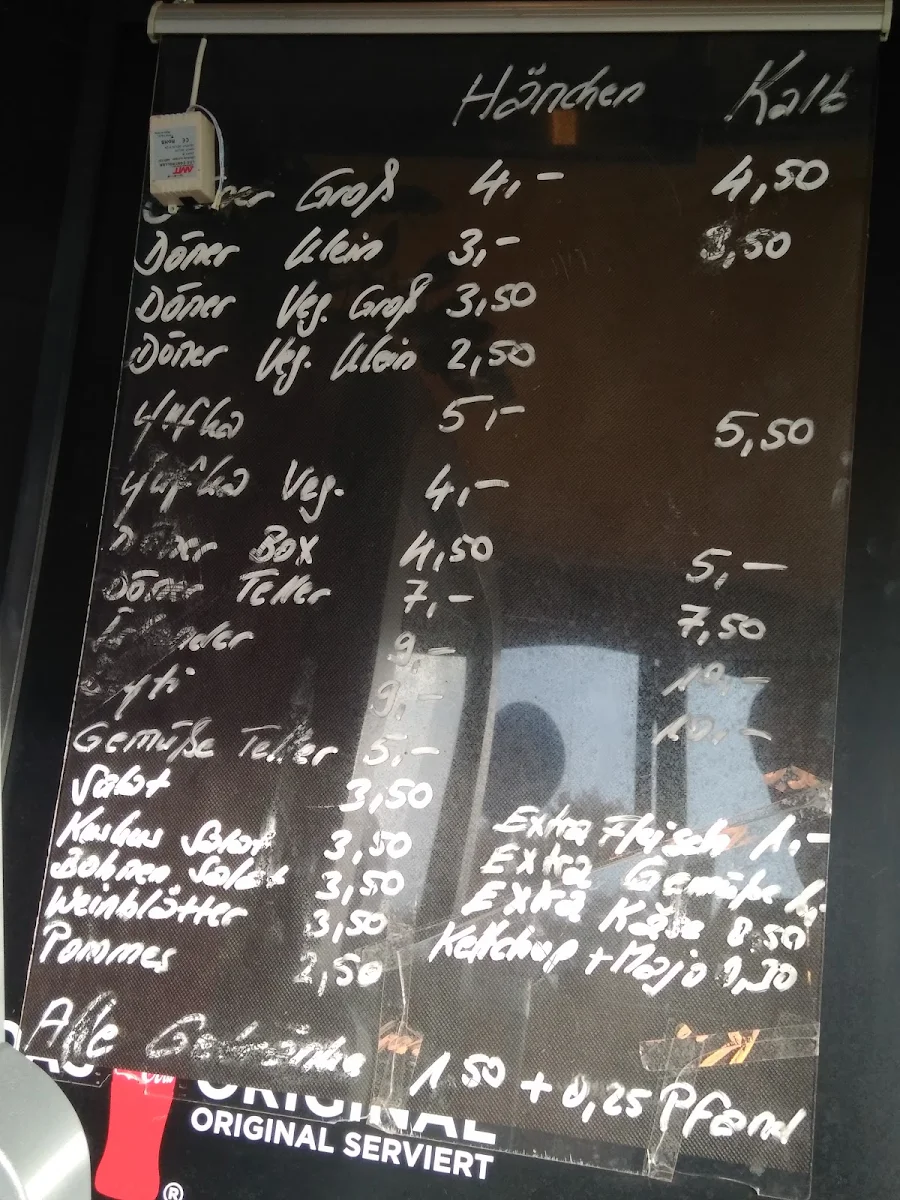 Hänchen Kalb
Groß 4,- 4,50
Döner Klein 3,- 3,50
Döner Veg. Groß 3,50
Döner Veg. Klein 2,50
Yufka 5,- 5,50
Yufka Veg. 4,-
Döner Box 4,50 5,-
Döner Teller 7,- 7,50
9,- 10,-
9,- 10,-
Gemüße Teller 5,-
Salat 3,50
Kuskus Salat 3,50
Bohnen Salat 3,50
Weinblätter 3,50
Pommes 2,50
Extra Fleisch 1,-
Extra Gemüße
Extra Käse 0.50
Ketchup + Majo
Alle Getränke 1 50 + 0,25 Pfand
ORIGINAL
ORIGINAL SERVIERT
®